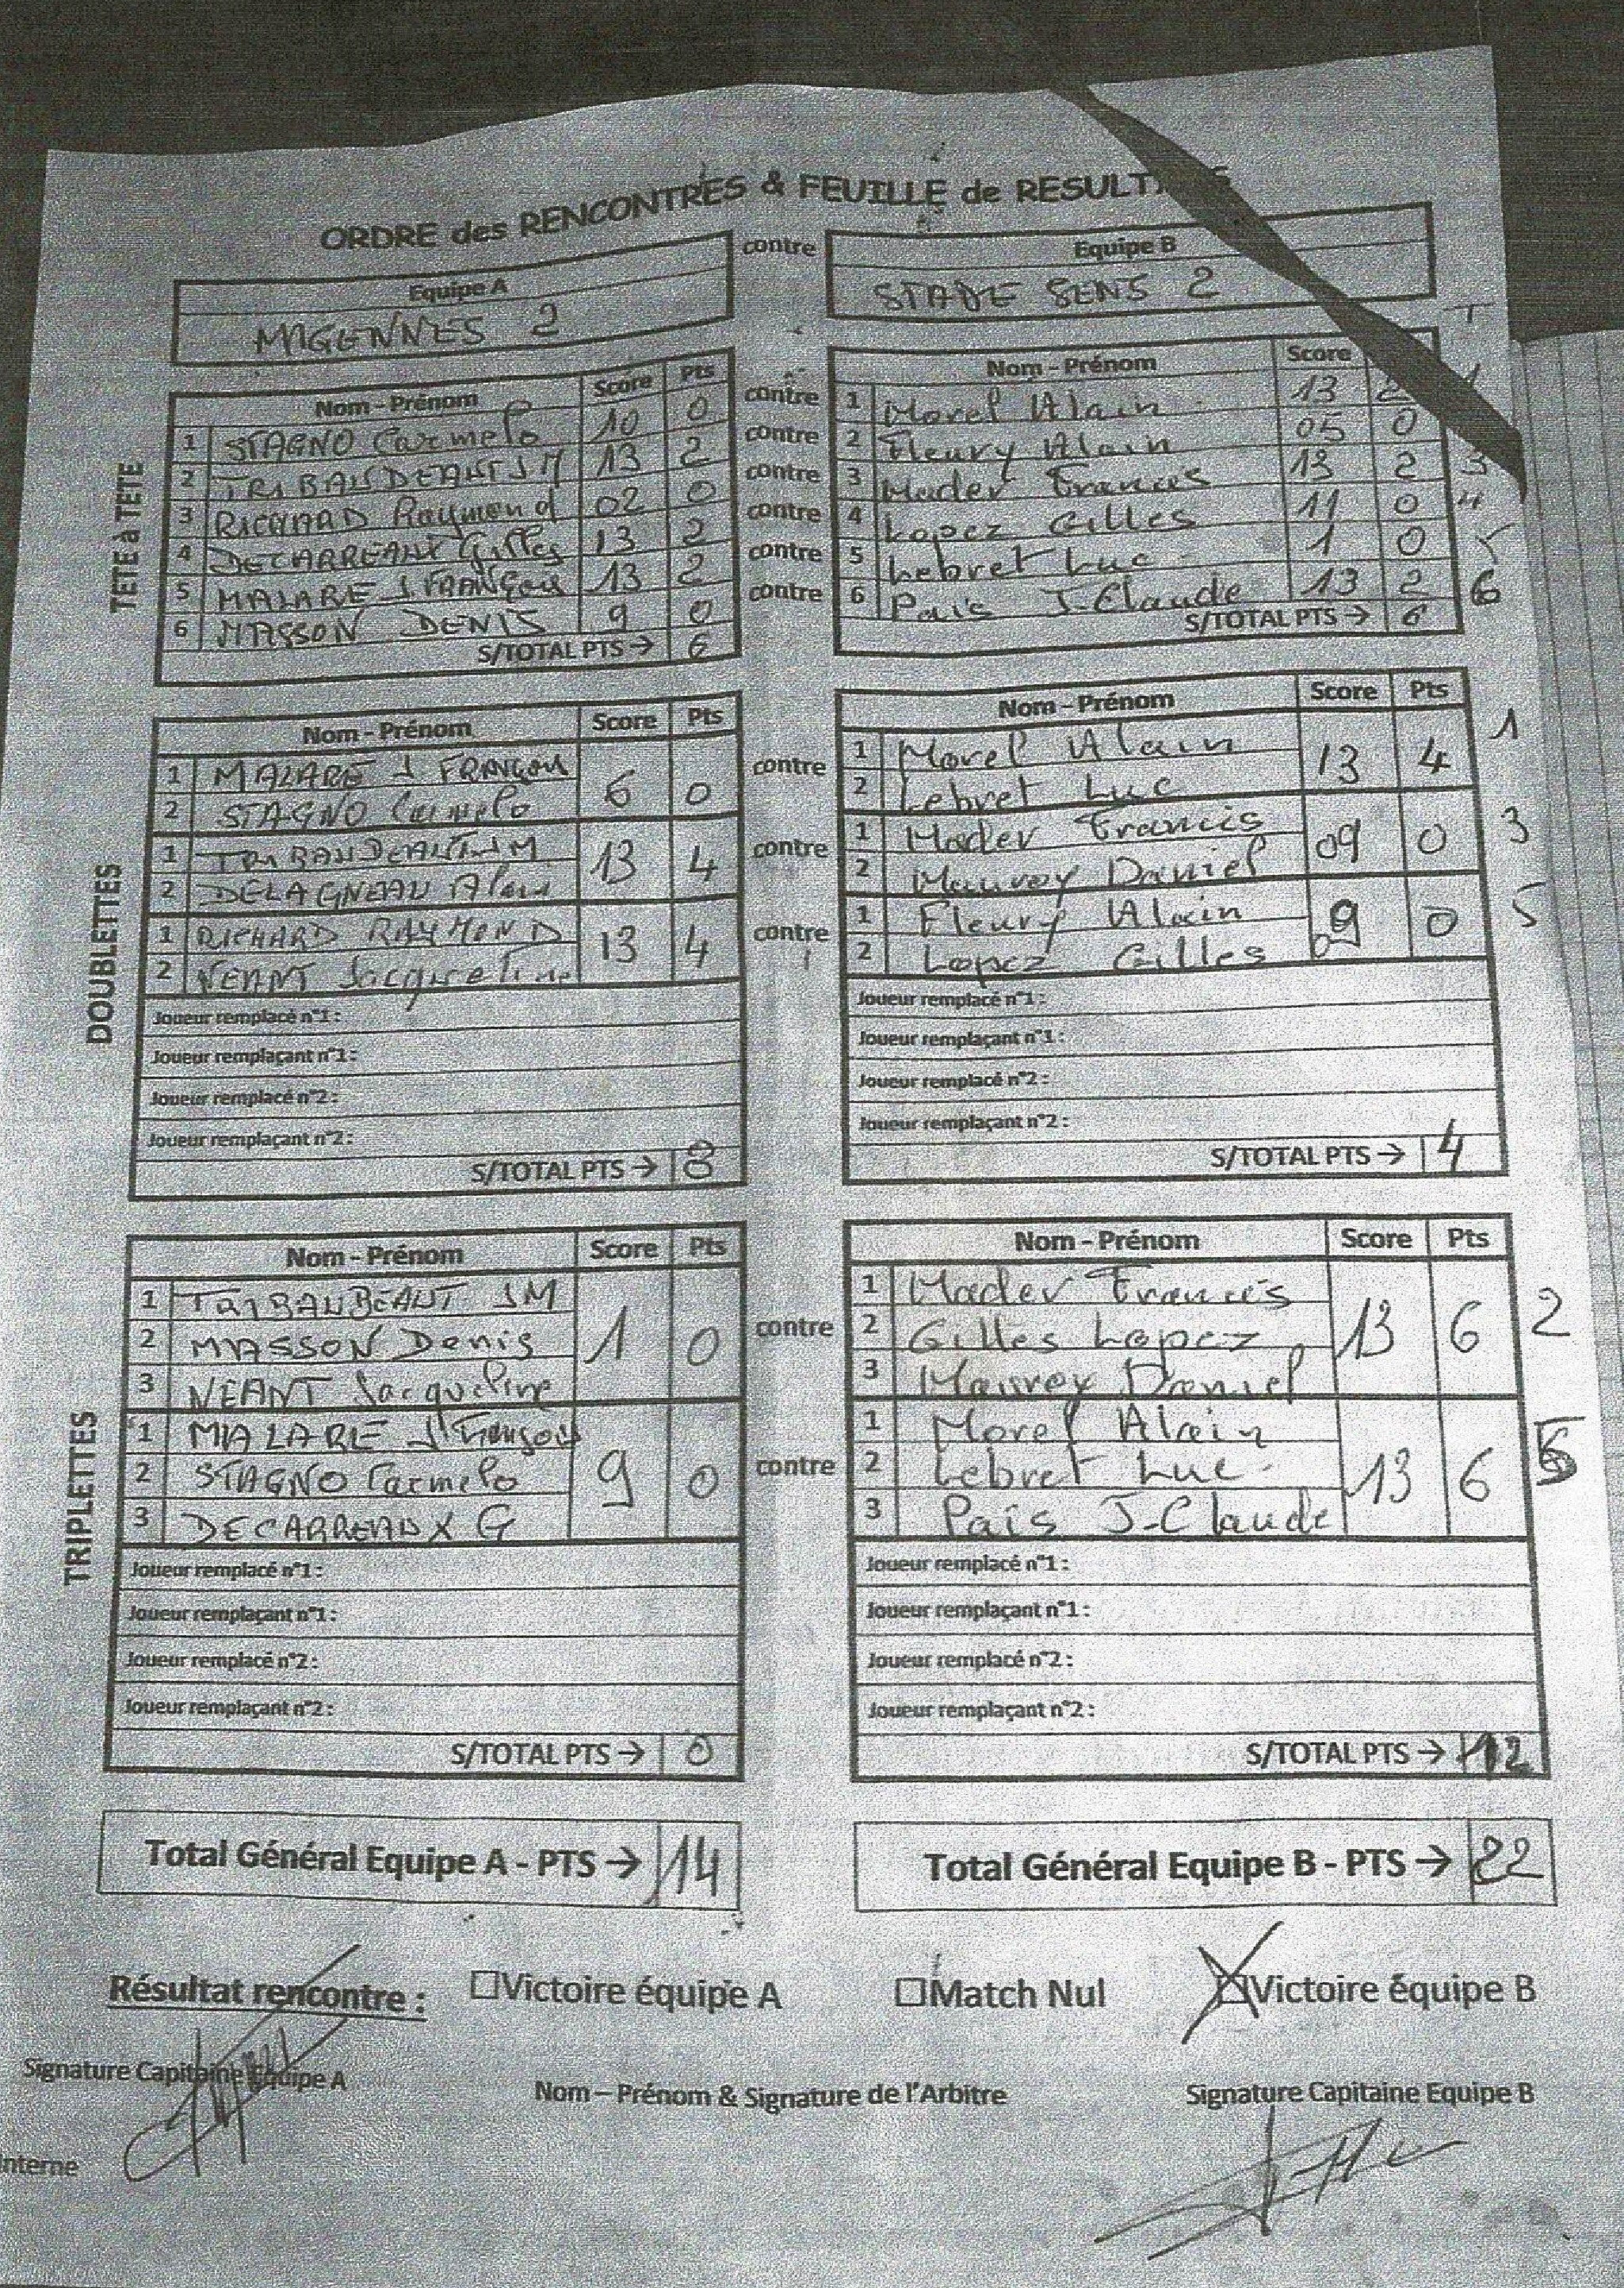 ORDRE des RENCONTRES & FEUILLE de RESULT
Equipe A contre Equipe B
MIGENNES 2 STADE SENS 2
Nom - Prénom Score Pts Nom - Prénom Score
1 STAGNO Carmelo 10 0 contre 1 Morel Alain 13 2 1
2 TRIBANDEANT JM 13 2 contre 2 Fleury Alain 05 0
3 RICHARD Raymond 02 0 contre 3 Mader Francis 13 2 3
4 DECARREAUX Gilles 13 2 contre 4 Lopez Gilles 11 0 4
5 MALARE J FRANÇOIS 13 2 contre 5 Lebret Luc 1 0 5
6 MASSON DENIS 9 0 contre 6 Pais J-Claude 13 2 6
S/TOTAL PTS → 6 S/TOTAL PTS → 6
TETE à TETE
Nom - Prénom Score Pts Nom - Prénom Score Pts
1 MALARE J FRANÇOIS 6 0 contre 1 Morel Alain 13 4 1
2 STAGNO Carmelo 2 Lebret Luc
1 TRIBANDEANT JM 13 4 contre 1 Mader Francis 09 0 3
2 DELAGNEAU Alain 2 Mauroy Daniel
1 RICHARD RAYMOND 13 4 contre 1 Fleury Alain 09 0 5
2 NEANT Jacqueline 2 Lopez Gilles
DOUBLETTES
Joueur remplacé n°1 : Joueur remplacé n°1 :
Joueur remplaçant n°1 : Joueur remplaçant n°1 :
Joueur remplacé n°2 : Joueur remplacé n°2 :
Joueur remplaçant n°2 : Joueur remplaçant n°2 :
S/TOTAL PTS → 8 S/TOTAL PTS → 4
Nom - Prénom Score Pts Nom - Prénom Score Pts
1 TRIBANDEANT JM 1 0 contre 1 Mader Francis 13 6 2
2 MASSON Denis 2 Gilles Lopez
3 NEANT Jacqueline 3 Mauroy Daniel
1 MALARE J François 9 0 contre 1 Morel Alain 13 6
2 STAGNO Carmelo 2 Lebret Luc
3 DECARREAUX G 3 Pais J-Claude
TRIPLETTES
Joueur remplacé n°1 : Joueur remplacé n°1 :
Joueur remplaçant n°1 : Joueur remplaçant n°1 :
Joueur remplacé n°2 : Joueur remplacé n°2 :
Joueur remplaçant n°2 : Joueur remplaçant n°2 :
S/TOTAL PTS → 0 S/TOTAL PTS → 12
Total Général Equipe A - PTS → 14 Total Général Equipe B - PTS → 22
Résultat rencontre : Victoire équipe A Match Nul Victoire équipe B
Signature Capitaine Equipe A Nom – Prénom & Signature de l'Arbitre Signature Capitaine Equipe B
Interne